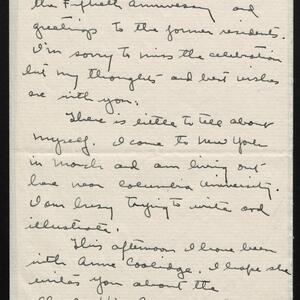 the Fiftieth Anniversary and
greetings to the former residents.
I'm sorry to miss the celebration
but my thoughts and best wishes
are with you.
There is little to tell about
myself. I came to New York
in March and am living out
here near Columbia University.
I am busy trying to write and
illustrate.
This afternoon I have been
with Anne Coolidge. I hope she
writes you about the